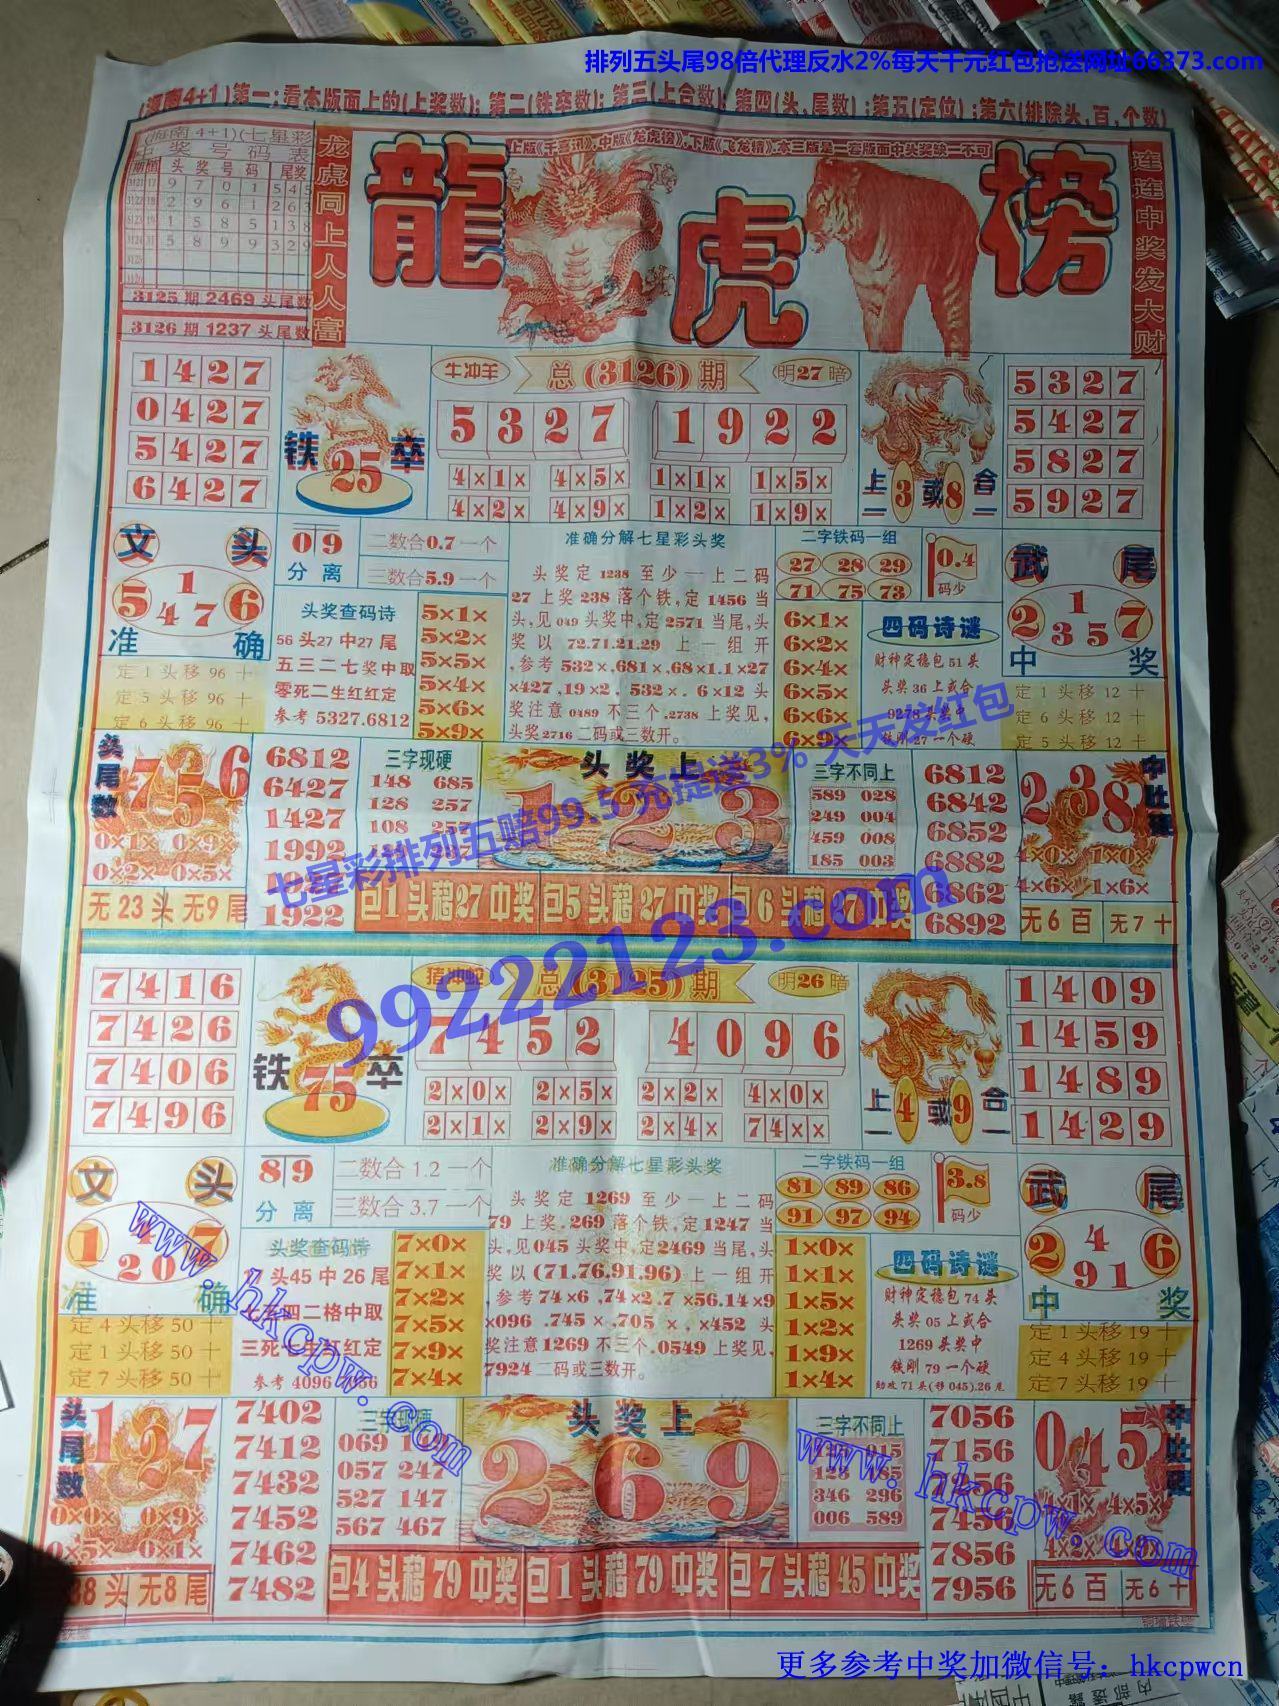 排列五头尾98倍代理反水2%每天千元红包抢送网址66373.com
(海南4+1)第一;看本版面上的(上奖数);第二(铁卒数);第三(上合数);第四(头,尾数);第五(定位);第六(排除头,百,个数)
(海南4+1)(七星彩)
中奖号码表
头奖号码 尾奖
9 7 0 1 5 4 5
2 9 6 1 2 6 3
1 5 8 5 1 3 8
5 8 9 9 3 2 9
3125期2469头尾数
3126期1237头尾数
龙虎同上人人富
上版《千喜讯》,中版《龙虎榜》,下版《飞龙榜》,本三版是一套版面中头奖缺一不可
龍虎榜
连连中奖发大财
1427
0427
5427
6427
铁25卒
牛冲羊
总(3126)期
明27暗
5327 1922
4×1× 4×5× 1×1× 1×5×
4×2× 4×9× 1×2× 1×9×
上3或8合
5327
5427
5827
5927
文头
1
5 6
47
准确
定1头移96十
定5头移96十
定6头移96十
09
分离
二数合0.7一个
三数合5.9一个
头奖查码诗
56头27中27尾
五三二七奖中取
零死二生红红定
参考5327.6812
5×1×
5×2×
5×5×
5×4×
5×6×
5×9×
准确分解七星彩头奖
头奖定1238至少一上二码
27上奖238落个铁,定1456当
头,见049头奖中,定2571当尾,头
奖以72.71.21.29上一组开
,参考532×,681×,68×1.1×27
×427,19×2.532×.6×12头
奖注意0489不三个.2738上奖见,
头奖2716二码或三数开。
二字铁码一组
27 28 29
71 75 73
0.4
码少
6×1×
6×2×
6×4×
6×5×
6×6×
6×9×
四码诗谜
财神定稳包51头
头奖36上或合
9278头奖中
铁刚27一个硬
武尾
1
2 7
35
中奖
定1头移12十
定6头移12十
定5头移12十
头尾数
756
0×1× 0×9×
0×2× 0×5×
无23头无9尾
6812
6427
1427
1992
1922
三字现硬
148 685
128 257
108
头奖上
123
三字不同上
589 028
249 004
459 008
185 003
6812
6842
6852
6882
6862
6892
238
中肚
4×0× 1×0×
4×6× 1×6×
无6百 无7十
包1头稽27中奖 包5头稽27中奖 包6头稽27中奖
七星彩排列五赔99.5充提送3%天天抢红包
99222123.com
7416
7426
7406
7496
铁75卒
猪冲蛇
总(3125)期
明26暗
7452 4096
2×0× 2×5× 2×2× 4×0×
2×1× 2×9× 2×4× 74××
上4或9合
1409
1459
1489
1429
文头
4
1 7
20
准确
定4头移50十
定1头移50十
定7头移50十
89
分离
二数合1.2一个
三数合3.7一个
头奖查码诗
头45中26尾
七五四二格中取
三死七生红红定
参考4096
7×0×
7×1×
7×2×
7×5×
7×9×
7×4×
准确分解七星彩头奖
头奖定1269至少一上二码
79上奖.269落个铁,定1247当
头,见045头奖中,定2469当尾,头
奖以(71.76.91.96)上一组开
,参考74×6,74×2.7×56.14×9
×096.745×.705×,×452头
奖注意1269不三个.0549上奖见,
7924二码或三数开。
二字铁码一组
81 89 86
91 97 94
3.8
码少
1×0×
1×1×
1×5×
1×2×
1×9×
1×4×
四码诗谜
财神定稳包74头
头奖05上或合
1269头奖中
铁刚79一个硬
助攻71头(移045).26尾
武尾
4
2 6
91
中奖
定1头移19十
定4头移19十
定7头移19十
头尾数
127
0×0× 0×9×
0×5× 0×1×
38头无8尾
7402
7412
7432
7452
7462
7482
三字现硬
069
057 247
527 147
567 467
头奖上
269
三字不同上
346 296
006 589
7056
7156
7256
7456
7856
7956
045
4×1× 4×5×
4×2×
无6百 无6十
包4头稽79中奖 包1头稽79中奖 包7头稽45中奖
www.hkcpw.com
www.hkcpw.com
更多参考中奖加微信号：hkcpwcn